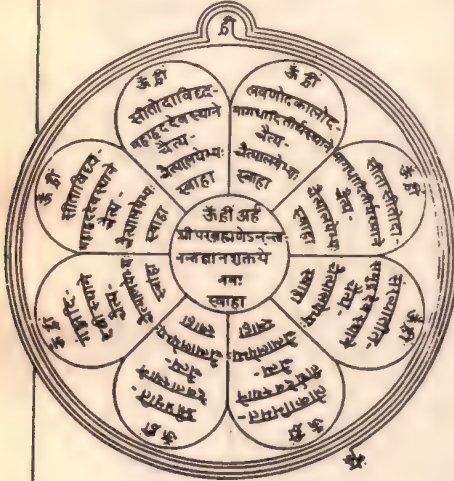 ह्रीं
ॐ ह्रीं अर्ह
श्रीपरब्रह्मणेऽनन्ता-
नन्तज्ञानशक्तये
नमः
स्वाहा
ॐ ह्रीं
लवणोदकालोद-
मागधादितीर्थस्थाने
चैत्य-
चैत्यालयेभ्यः
स्वाहा
ॐ ह्रीं
सीतासीतोदा-
मागधादितीर्थस्थाने
चैत्य-
चैत्यालयेभ्यः
स्वाहा
ॐ ह्रीं
समुद्रदेवस्थाने
चैत्य-
चैत्यालयेभ्यः
स्वाहा
ॐ ह्रीं
तीर्थदेवस्थाने
चैत्य-
चैत्यालयेभ्यः
स्वाहा
ॐ ह्रीं
श्रीप्रभृति-
देवतास्थाने
चैत्य-
चैत्यालयेभ्यः
स्वाहा
ॐ ह्रीं
गंगादि-
देवीस्थाने
चैत्य-
चैत्यालयेभ्यः
स्वाहा
ॐ ह्रीं
सीताविध्द-
महाह्रददेवस्थाने
चैत्य-
चैत्यालयेभ्यः
स्वाहा
ॐ ह्रीं
सीतोदाविध्द-
महाह्रददेवस्थाने
चैत्य-
चैत्यालयेभ्यः
स्वाहा